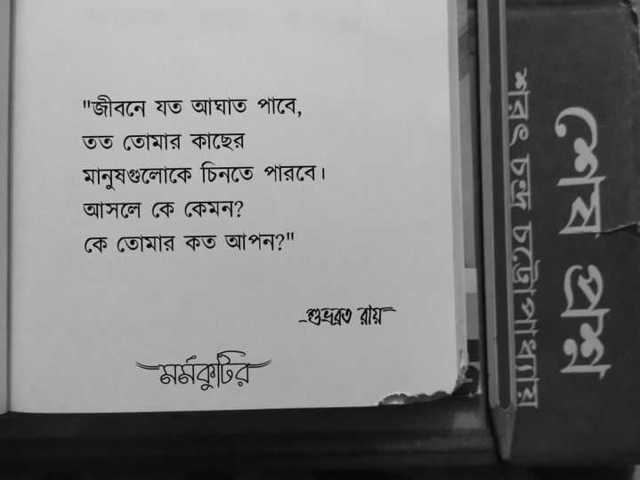 "জীবনে যত আঘাত পাবে,
তত তোমার কাছের
মানুষগুলোকে চিনতে পারবে।
আসলে কে কেমন?
কে তোমার কত আপন?"
-শুভ্রব্রত রায়
মর্মকুটির
শেষ প্রশ্ন
শরৎ চন্দ্র চট্টোপাধ্যায়